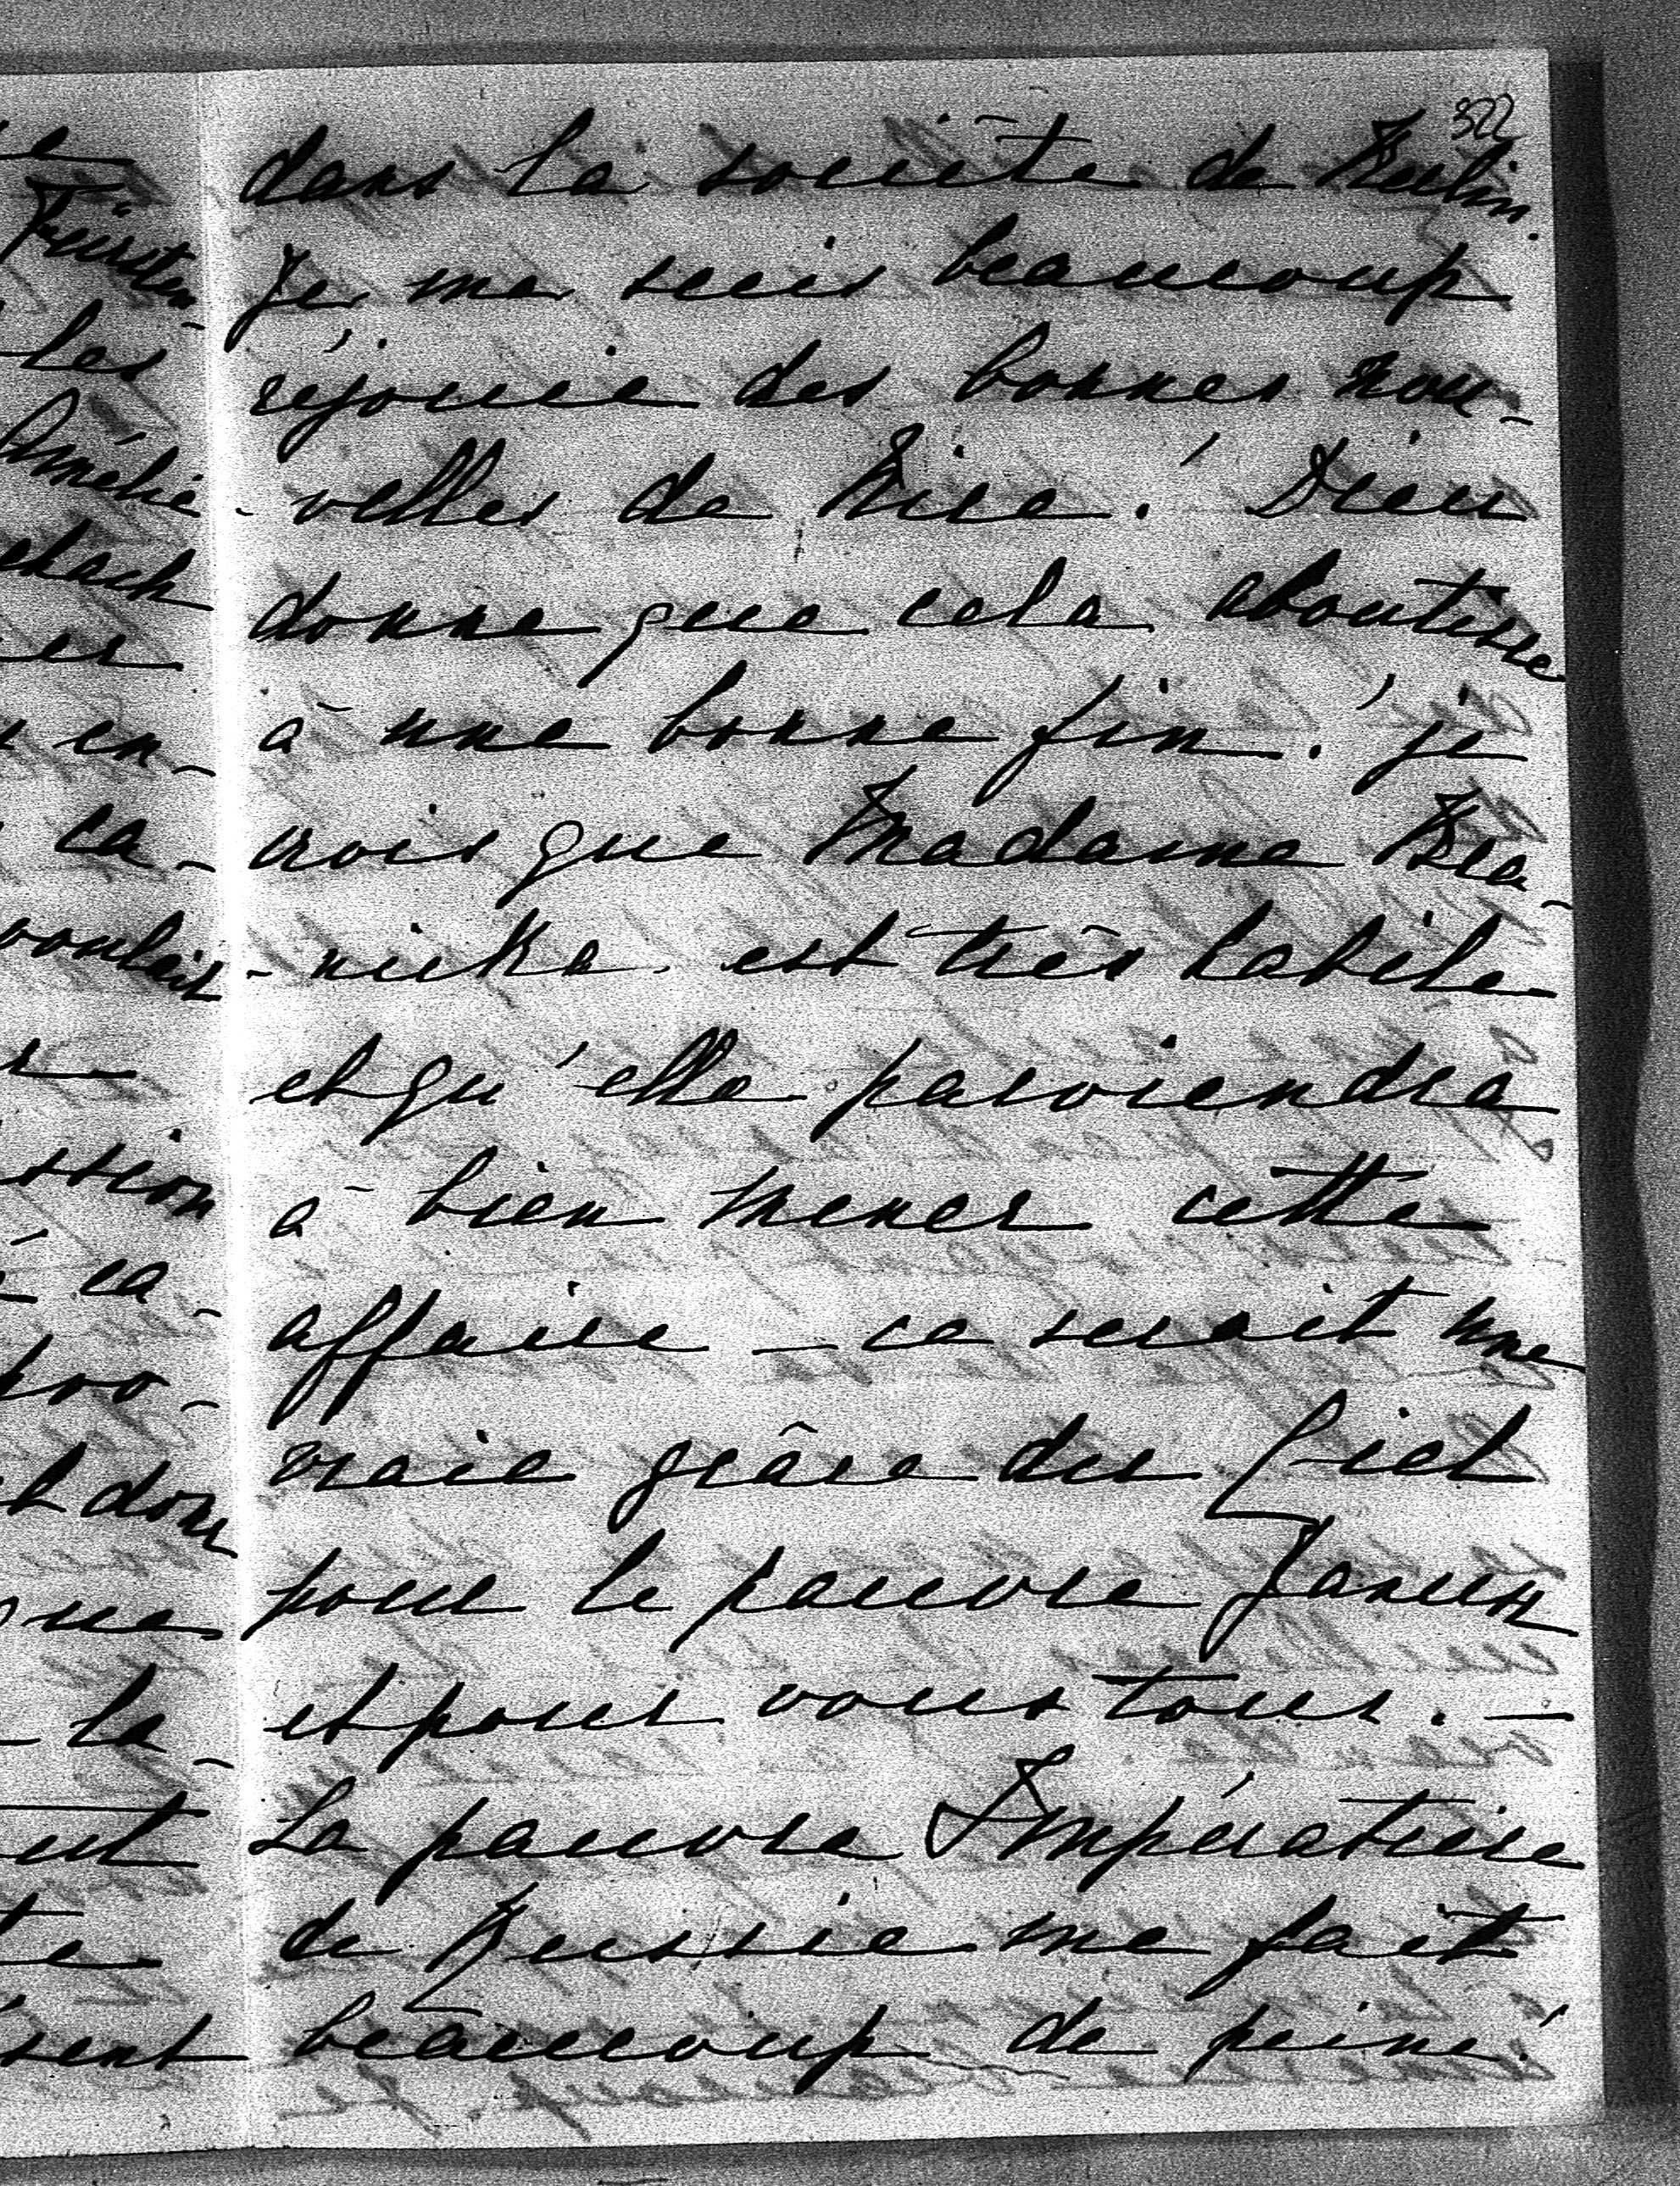 le
Fürsten-
les
Amélie
er
en-
ca-
vouloir
ssion
ca-
pro-
donc
que
la-
sent
322
dans la société de Berlin.
Je me suis beaucoup
réjouie des bonnes nou-
-velles de Nice! Dieu
donne que cela aboutisse
à une bonne fin! je
crois que Madame Bea-
-nicka est très habile
et qu'elle parviendra
à bien mener cette
affaire — ce serait une
vraie grâce du Ciel
pour le pauvre Janusz
et pour vous tous. —
La pauvre Impératrice
de Russie me fait
beaucoup de peine!